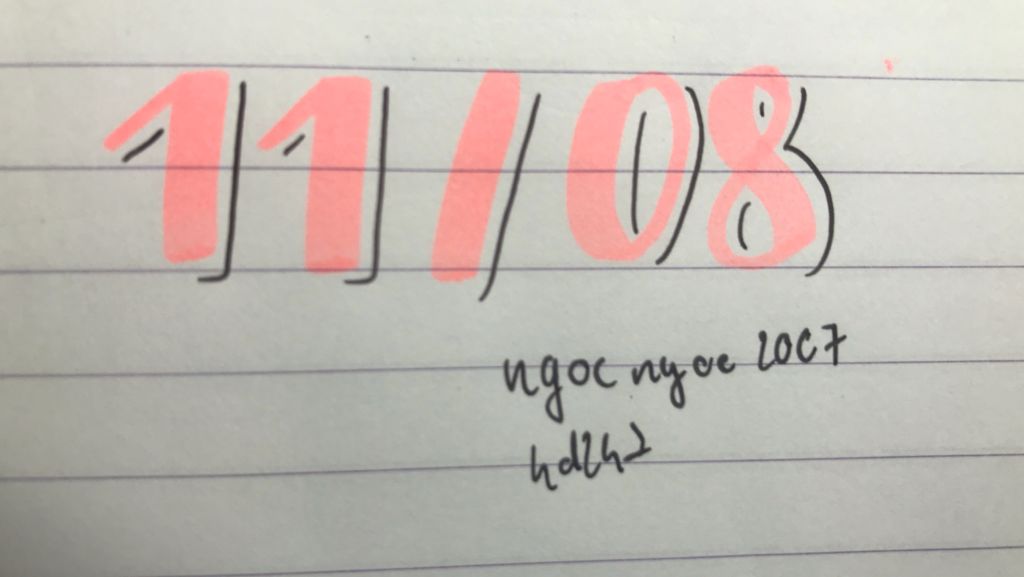 11/08
ngoc ngoc loc7
hdh2